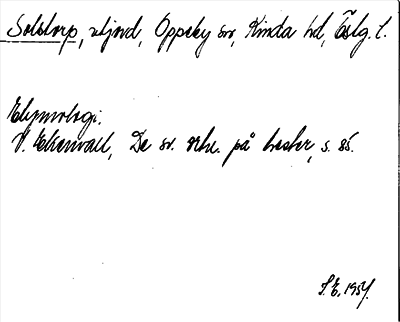 Solstorp, utjord, Oppeby sn, Kinda hd, Östg. l.
Etymologi.
V. Ekenvall, De sv. ortn. på hester, s. 85.
S.E. 1954.